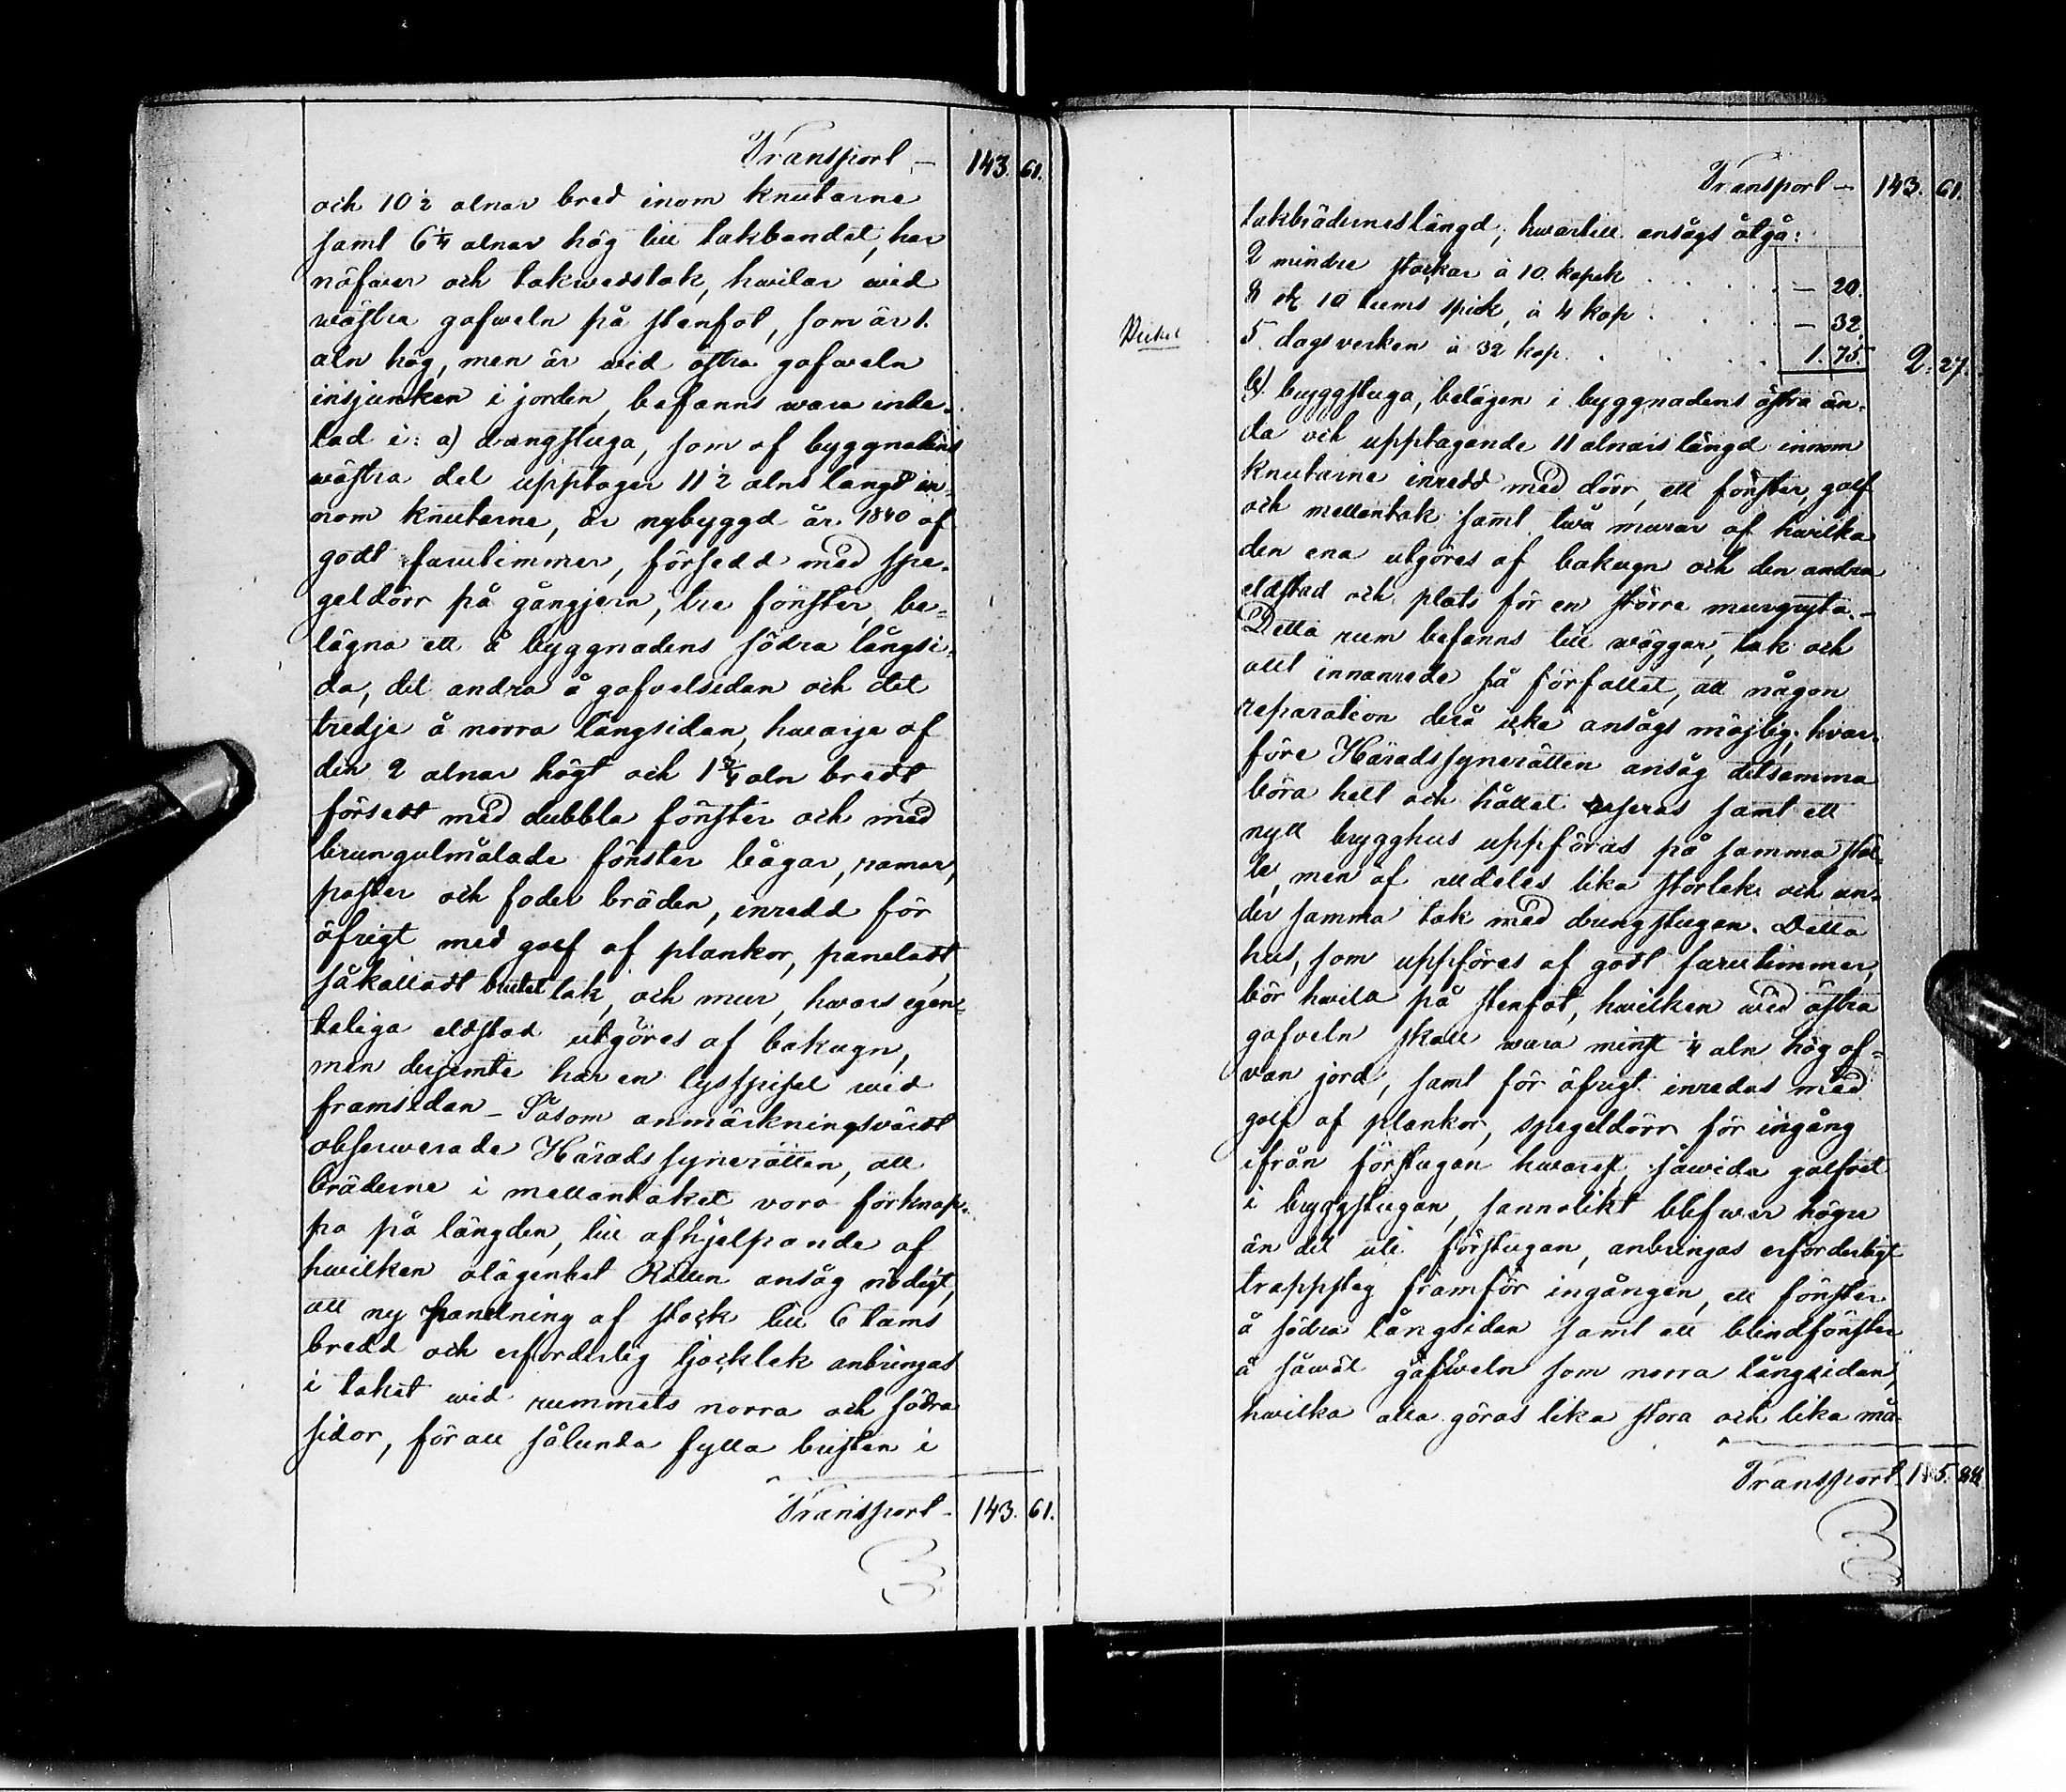 Transport – 143. 61.
och 10½ alnar bred inom knutarne
samt 6¼ alnar hög till takbandet, har
näfwer och takwedstak, hwilar wid
wästra gafweln på stenfot, som är 1.
aln hög, men är wid östra gafweln
insjunken i jorden, befanns wara inde-
lad i: a) drängstuga, som af byggnadens
wästra del upptager 11½ alns längd in-
nom knutarne, är nybyggd år 1840 af
godt furutimmer, försedd med spe-
geldörr på gångjern, tre fönster, be-
lägna ett å byggnadens södra långsi-
da, det andra å gafvelsidan och det
tredje å norra långsidan, hwarje af
dem 2 alnar högt och 1¾ aln bredt
försedt med dubbla fönster och med
brungulmålade fönster bågar, ramar,
poster och foder bräden, inredd för
öfrigt med golf af plankor, paneladt,
såkalladt brutet tak, och mur, hwars egen-
teliga eldstad utgöres af bakugn,
men derjemte har en lysspisel wid
framsidan – Såsom anmärkningsvärdt
observerade Häradssynerätten, att
bräderne i mellantaket voro förknap-
pa på längden, till afhjelpande af
hwilken olägenhet Rätten ansåg nödigt,
att ny panelning af stock till 6 tums
bredd och erforderlig tjocklek anbringas
i taket wid rummets norra och södra
sidor, för att sålunda fylla bristen i
Transport – 143. 61.
Transport – 143. 61.
takbrädernes längd, hwartill ansågs åtgå:
2 mindre stockar à 10. kopek . . . . . – 20.
8 st 10 tums spik, à 4 kop . . . . – 32.
5. dagsverken à 32 kop. . . . . 1. 75. 2. 27.
b) bryggstuga, belägen i byggnadens östra än-
da och upptagande 11 alnars längd innom
knutarne inredd med dörr, ett fönster, golf
och mellantak samt två murar af hwilka
den ena utgöres af bakugn och den andra
eldstad och plats för en större murgryta. –
Detta rum befanns till wäggar, tak och
allt innanrede så förfallet, att någon
reparation derå icke ansågs möjlig; hvar-
före Häradssynerätten ansåg detsamma
böra helt och hållet raseras samt ett
nytt brygghus uppföras på samma stäl-
le, men af alldeles lika storlek och un-
der samma tak med drengstugan. Detta
hus, som uppföres af godt furutimmer,
bör hwila på stenfot, hwilken wid östra
gafveln skall wara minst ¼ aln hög of-
van jord, samt för öfrigt inredas med
golf af plankor, spegeldörr för ingång
ifrån förstugan hwarest, såwida golfvet
i bryggstugan, sannolikt blifwer högre
än det uti förstugan, anbringas erforderligt
trappsteg framför ingången, ett fönster
å södra långsidan samt ett blindfönster
å såwäl gafweln som norra långsidan,
hwilka alla göras lika stora och lika må-
Transport 145. 88.